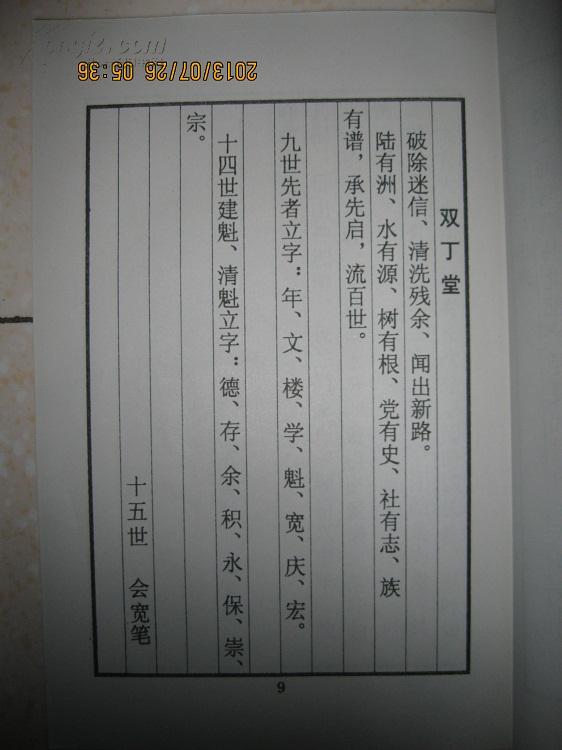 双丁堂
破除迷信、清洗残余、闻出新路。
陆有洲、水有源、树有根、党有史、社有志、族
有谱，承先启，流百世。
九世先者立字：年、文、楼、学、魁、宽、庆、宏。
十四世建魁、清魁立字：德、存、余、积、永、保、崇、
宗。
十五世 会宽笔
9
2013/07/26 05:36